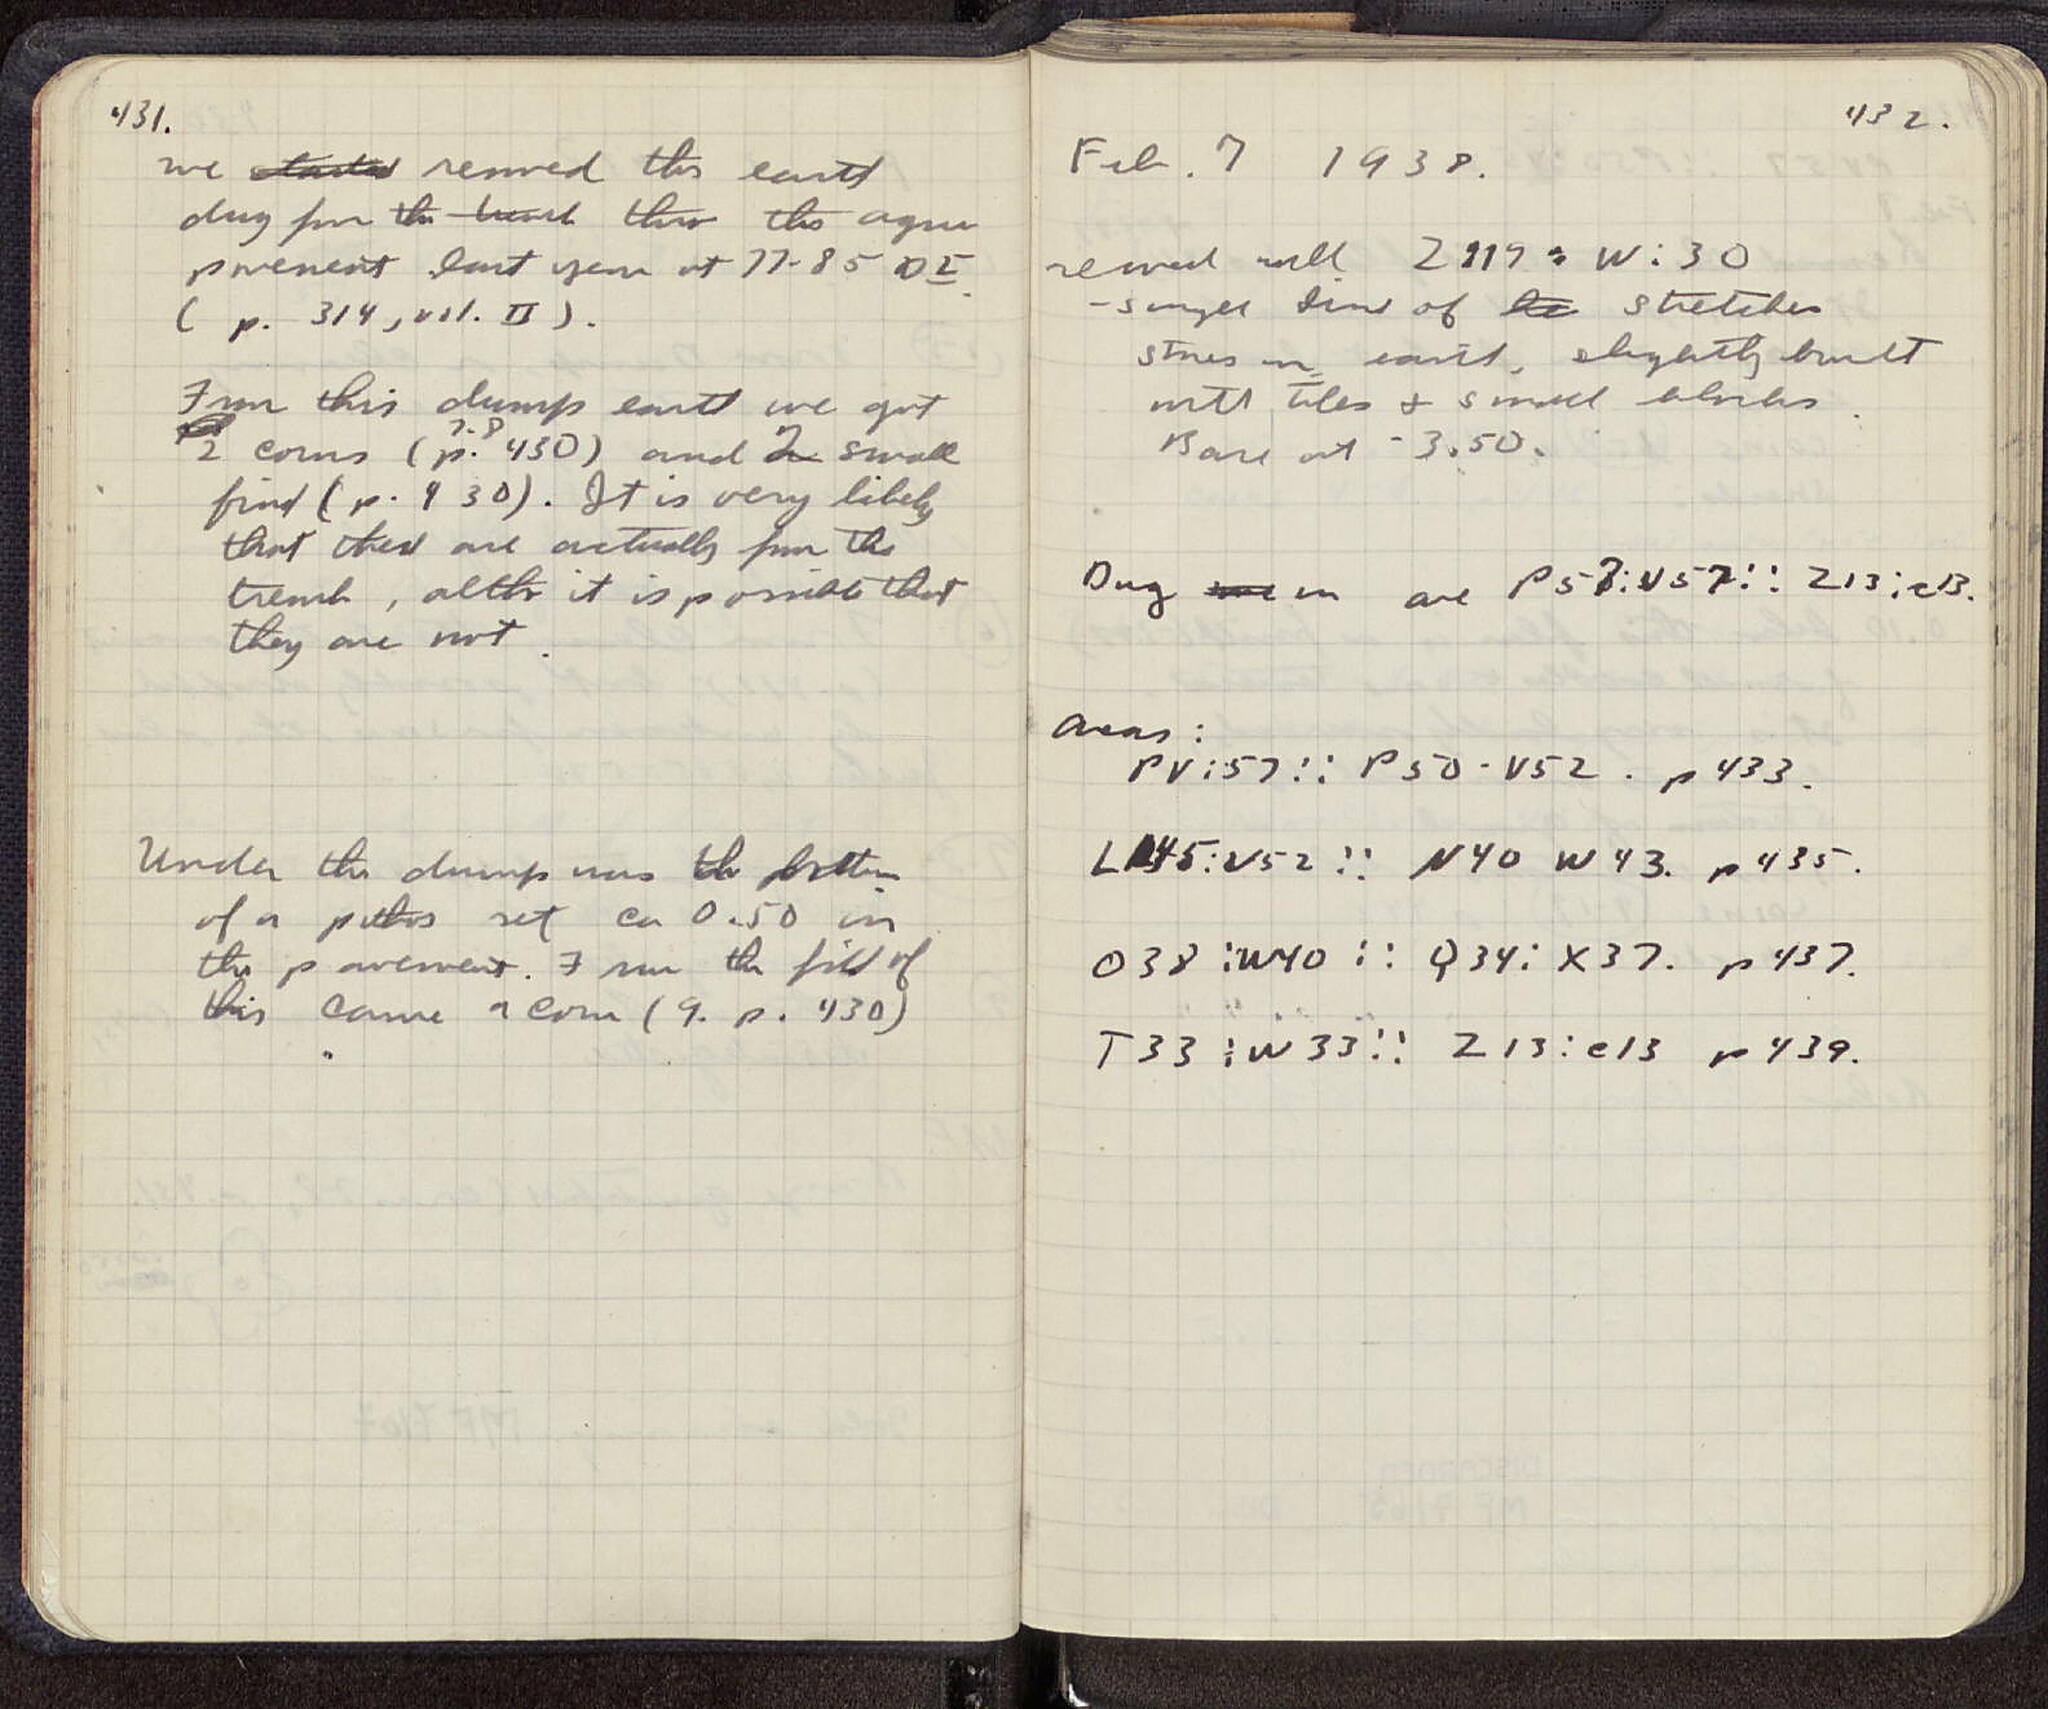 431.
we started removed this earth
dug from the trench thru the agora
pavement last year at 77-85 DE.
( p. 314, vol. II ).
From this dump earth we got
7.8
2 coins (p. 430) and 2 small
find (p. 430). It is very likely
that these are actually from the
trench, altho it is possible that
they are not.
Under the dump was the bottom
of a pithos set ca 0.50 in
the pavement. From the fill of
this came a coin (9. p. 430)
432.
Feb. 7 1938.
removed wall Z 19 : W:30
- single line of stretcher
stones in earth, slightly built
with tiles & small blocks.
Base at -3.50.
Dug in are P57:V57:: Z13:e13.
Areas:
PV:57:: P50-V52. p 433.
L45:V52:: N40 W43. p 435.
O38:W40:: Q34:X37. p 437.
T33:W33:: Z13:e13 p 439.